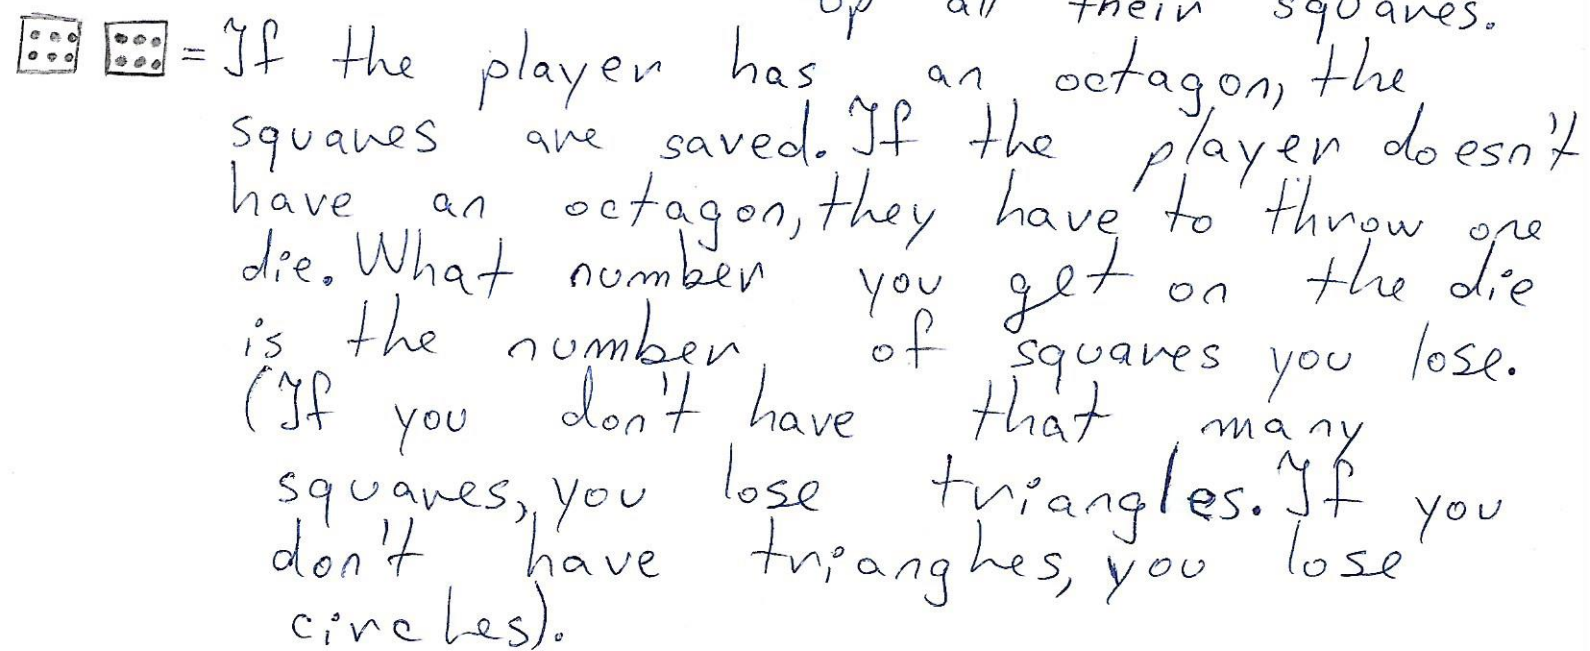 up all their squares.
= If the player has an octagon, the
squares are saved. If the player doesn't
have an octagon, they have to throw one
die. What number you get on the die
is the number of squares you lose.
(If you don't have that many
squares, you lose triangles. If you
don't have triangles, you lose
circles).